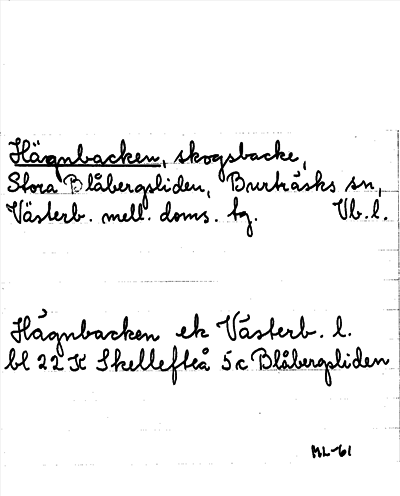 Hägnbacken, skogsbacke,
Stora Blåbergsliden, Burträsks sn,
Västerb. mell. doms. tg. Vb.l.
Hägnbacken ek Västerb. l.
bl 22 K Skellefteå 5c Blåbergsliden
ML-61